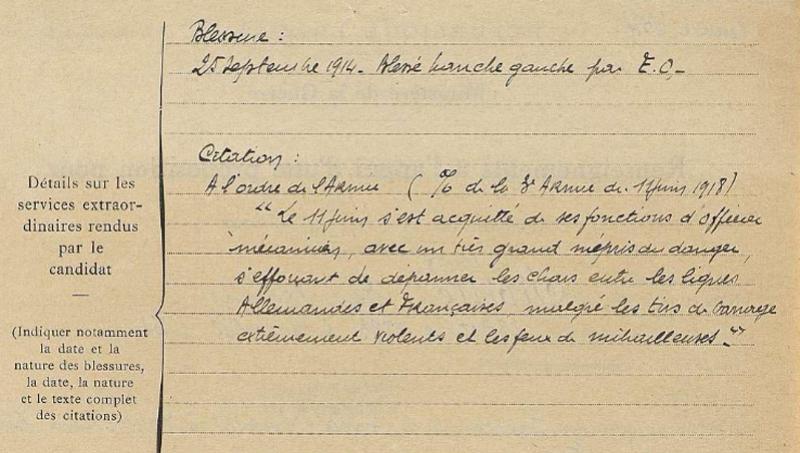 Détails sur les
services extraor-
dinaires rendus
par le
candidat
—
(Indiquer notamment
la date et la
nature des blessures,
la date, la nature
et le texte complet
des citations)
Blessure :
25 septembre 1914 - Blessé hanche gauche par E.O.-
Citation :
A l'ordre de l'Armée ( de la 3e Armée du juin 1918)
"Le 11 juin s'est acquitté de ses fonctions d'officier
mécanicien, avec un très grand mépris du danger,
s'efforçant de dépanner les chars entre les lignes
Allemandes et Françaises, malgré les tirs de barrage
extrêmement violents et les feux de mitrailleuses."